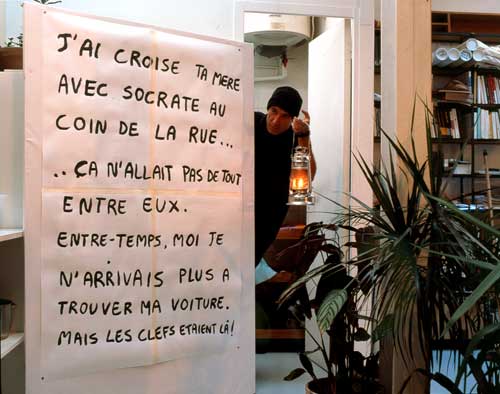 J'AI CROISE TA MERE
AVEC SOCRATE AU
COIN DE LA RUE...
.. ÇA N'ALLAIT PAS DE TOUT
ENTRE EUX.
ENTRE-TEMPS, MOI JE
N'ARRIVAIS PLUS A
TROUVER MA VOITURE.
MAIS LES CLEFS ETAIENT LÀ!